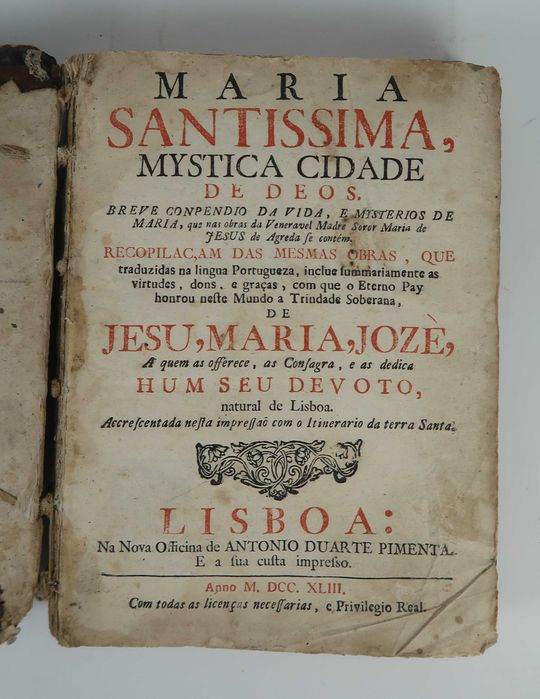 MARIA
SANTISSIMA,
MYSTICA CIDADE
DE DEOS.
BREVE CONPENDIO DA VIDA, E MYSTERIOS DE
MARIA, que nas obras da Veneravel Madre Soror Maria de
JESUS de Agreda ſe contém.
RECOPILAC,AM DAS MESMAS OBRAS, QUE
traduzidas na lingua Portugueza, inclue ſummariamente as
virtudes, dons, e graças, com que o Eterno Pay
honrou neſte Mundo a Trindade Soberana,
DE
JESU, MARIA, JOZÈ,
A quem as offerece, as Conſagra, e as dedica
HUM SEU DEVOTO,
natural de Lisboa.
Accreſcentada neſta impreſſaõ com o Itinerario da terra Santa.
LISBOA:
Na Nova Officina de ANTONIO DUARTE PIMENTA.
E a ſua cuſta impreſſo.
Anno M. DCC. XLIII.
Com todas as licenças neceſſarias, e Privilegio Real.